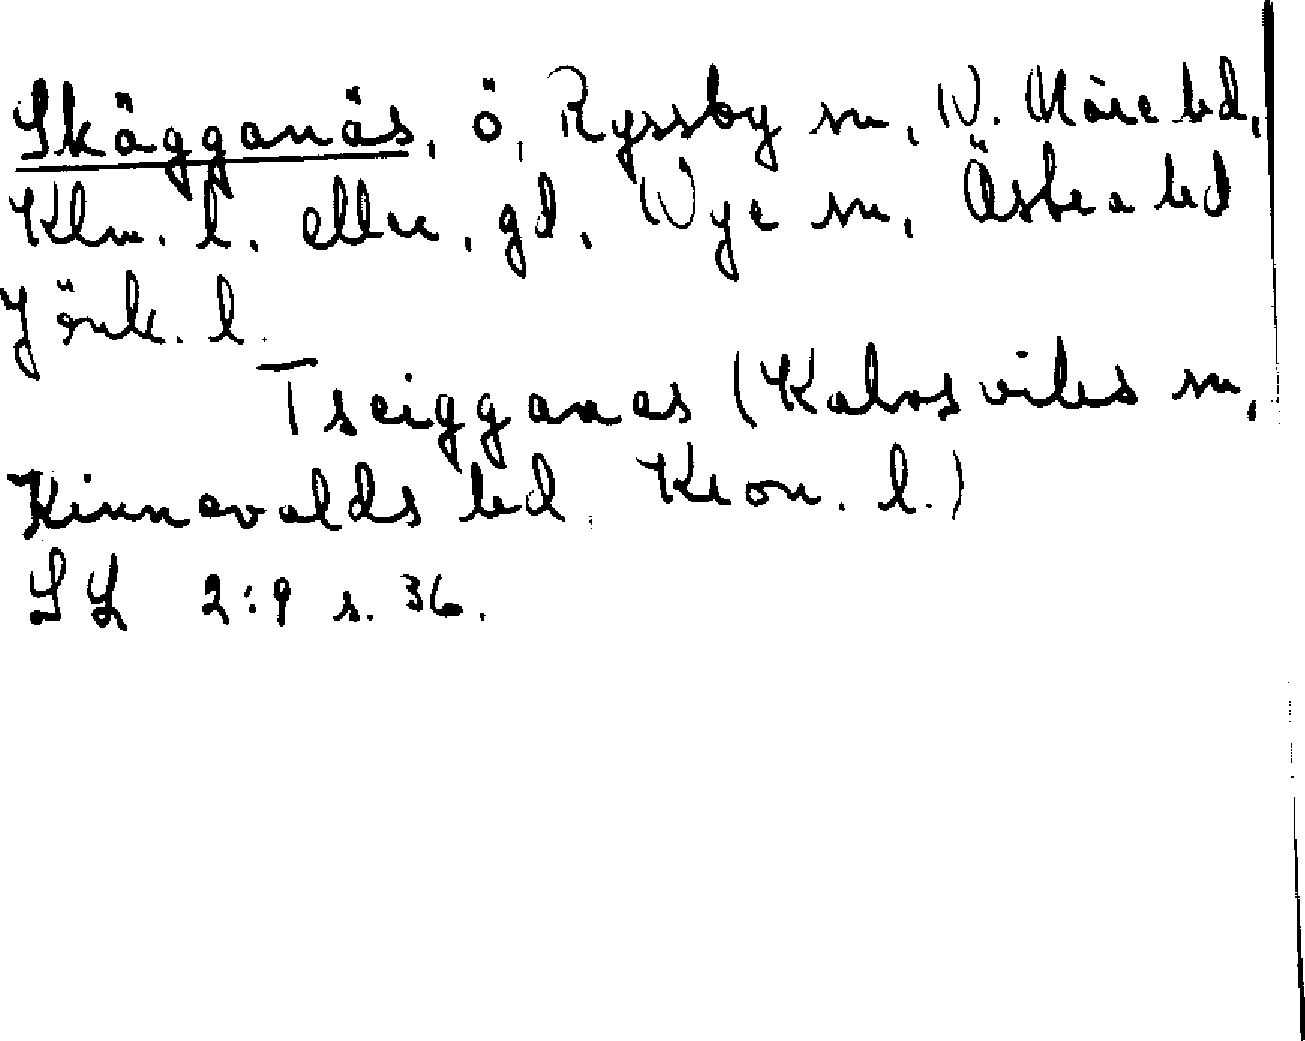 Skägganäs, ö, Ryssby sn, N. Möre hd,
Klm. l. eller, gd, Nye sn, Östra hd
Jönk. l.
Tseigganas (Kalvsviks sn,
Kinnevalds hd, Kron. l.)
SL 2:9 s. 36.